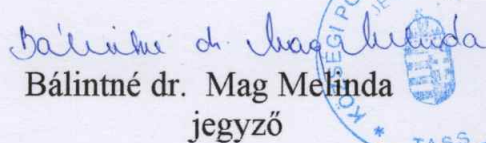 Bálintné dr. Mag Melinda
Bálintné dr. Mag Melinda
jegyző
KÖZSÉGI PO
JE
* TASS